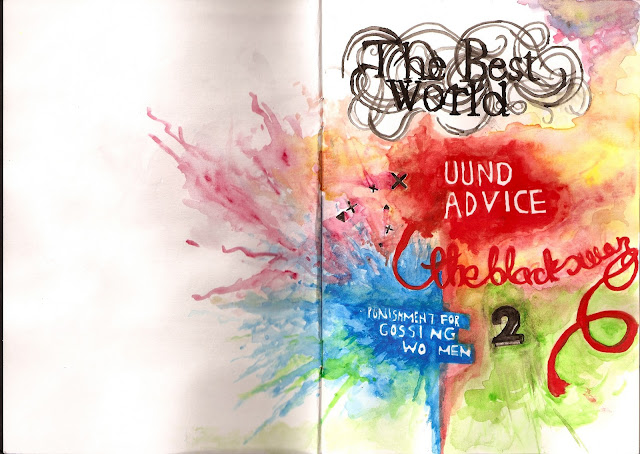 The Best
World
UUND
ADVICE
the black swan
PUNISHMENT FOR
GOSSING
WO MEN
2